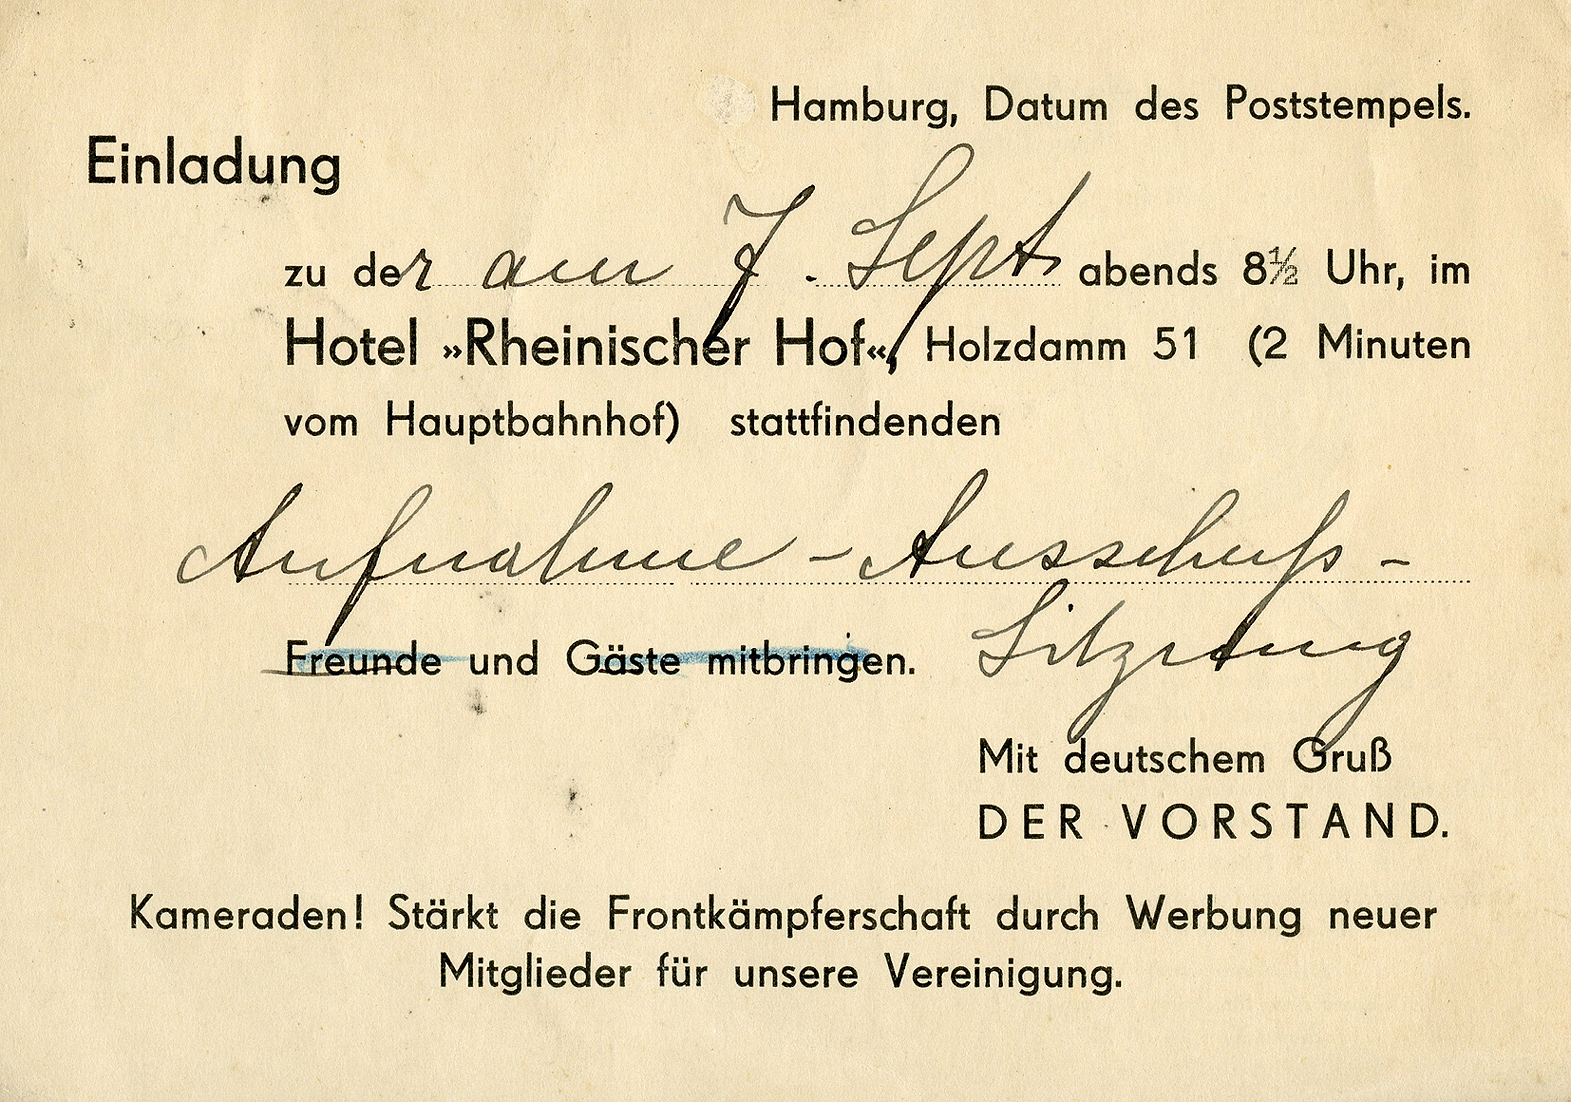 Hamburg, Datum des Poststempels.
Einladung
zu der am 7. Sept. abends 8½ Uhr, im
Hotel »Rheinischer Hof«, Holzdamm 51 (2 Minuten
vom Hauptbahnhof) stattfindenden
Aufnahme-Ausschuß-
Sitzung
Freunde und Gäste mitbringen.
Mit deutschem Gruß
DER VORSTAND.
Kameraden! Stärkt die Frontkämpferschaft durch Werbung neuer
Mitglieder für unsere Vereinigung.